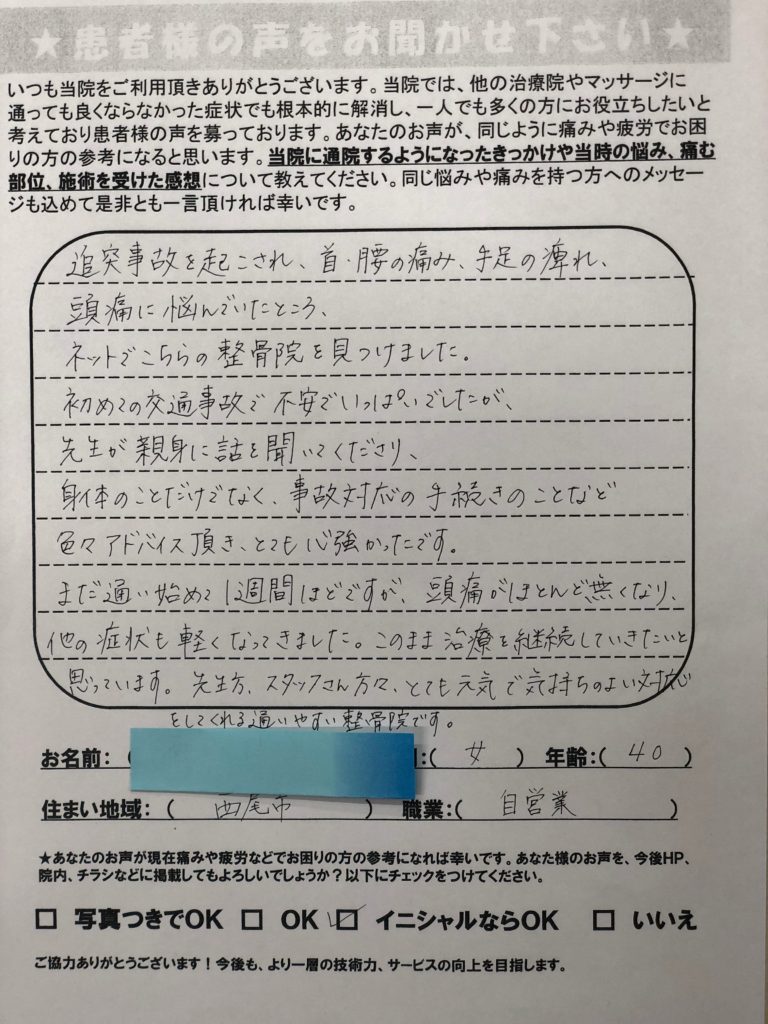 ★患者様の声をお聞かせ下さい★
いつも当院をご利用頂きありがとうございます。当院では、他の治療院やマッサージに
通っても良くならなかった症状でも根本的に解消し、一人でも多くの方にお役立ちしたいと
考えており患者様の声を募っております。あなたのお声が、同じように痛みや疲労でお困
りの方の参考になると思います。当院に通院するようになったきっかけや当時の悩み、痛む
部位、施術を受けた感想について教えてください。同じ悩みや痛みを持つ方へのメッセー
ジも込めて是非とも一言頂ければ幸いです。
追突事故を起こされ、首・腰の痛み、手足の痺れ、
頭痛に悩んでいたところ、
ネットでこちらの整骨院を見つけました。
初めての交通事故で不安でいっぱいでしたが、
先生が親身に話を聞いてくださり、
身体のことだけでなく、事故対応の手続きのことなど
色々アドバイス頂き、とても心強かったです。
まだ通い始めて1週間ほどですが、頭痛がほとんど無くなり、
他の症状も軽くなってきました。このまま治療を継続していきたいと
思っています。先生方、スタッフさん方々、とても元気で気持ちのよい対応
をしてくれる通いやすい整骨院です。
お名前：( :( 女 ) 年齢：( 40 )
住まい地域：( 西尾市 ) 職業：( 自営業 )
★あなたのお声が現在痛みや疲労などでお困りの方の参考になれば幸いです。あなた様のお声を、今後HP、
院内、チラシなどに掲載してもよろしいでしょうか？以下にチェックをつけてください。
□ 写真つきでOK □ OK ☑ イニシャルならOK □ いいえ
ご協力ありがとうございます！今後も、より一層の技術力、サービスの向上を目指します。